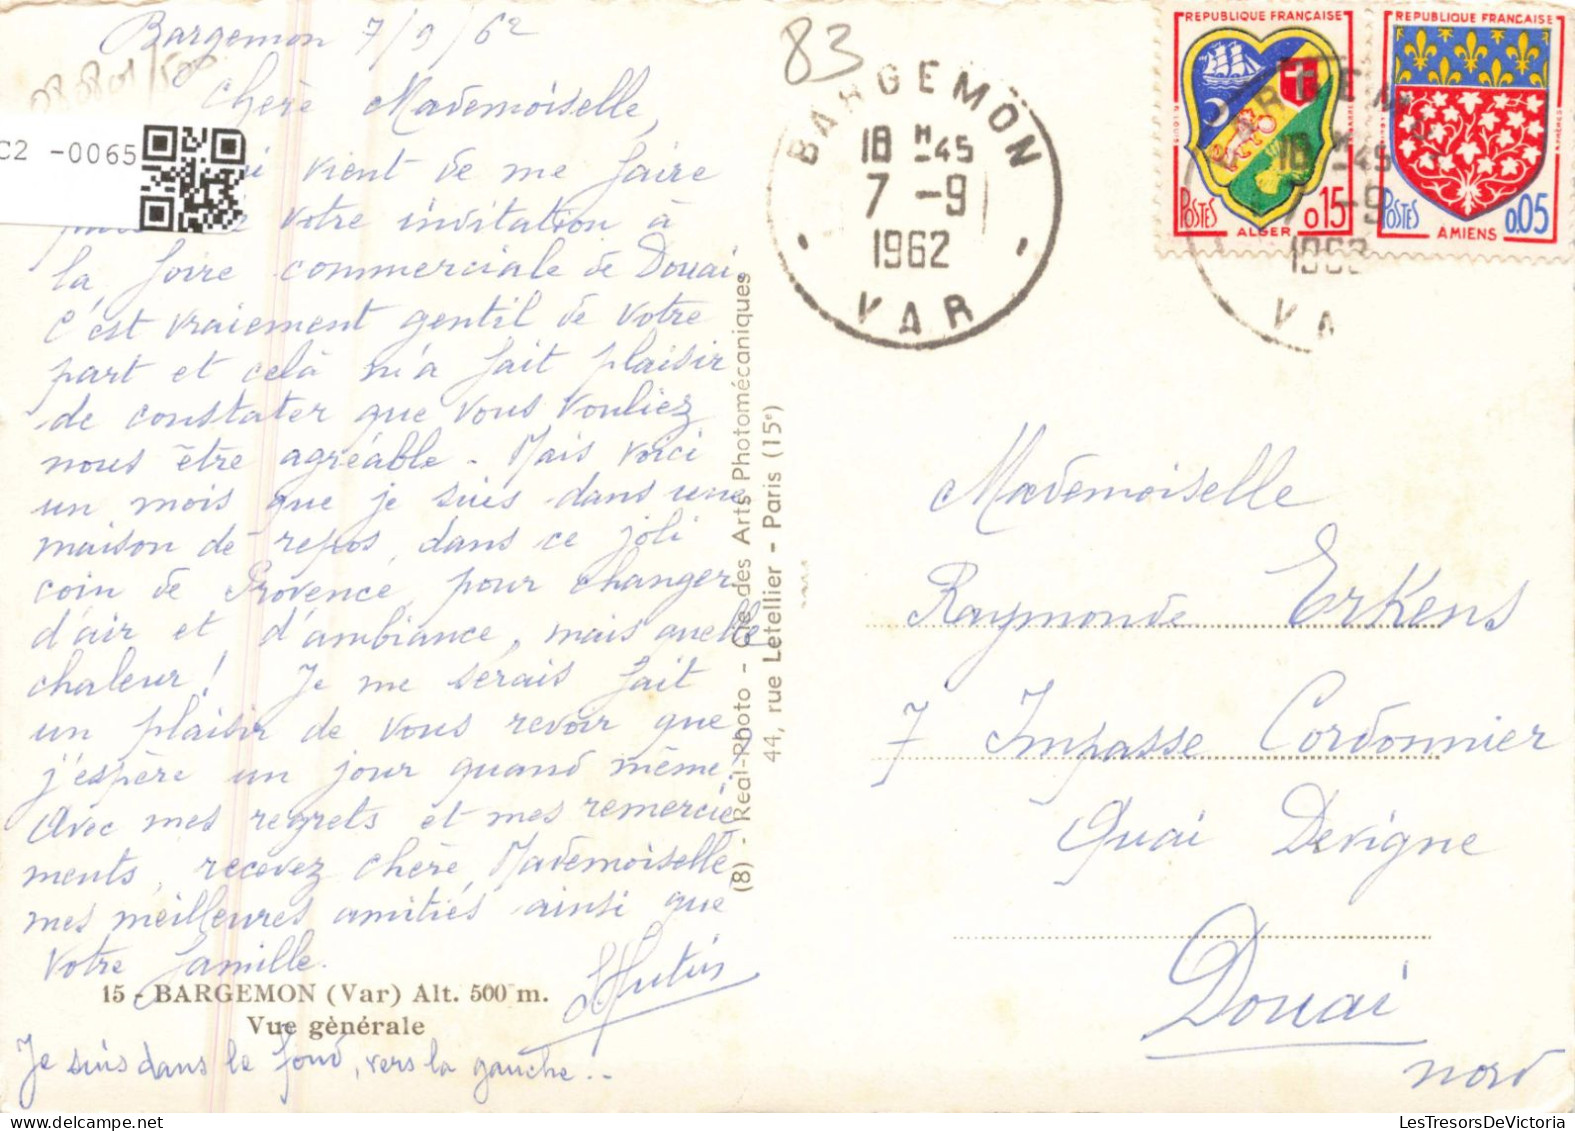 Bargemon 7/9/62
Chère Mademoiselle,
C2 -0065
vient de me faire
votre invitation à
la foire commerciale de Douai.
C'est vraiement gentil de votre
part et celà m'a fait plaisir
de constater que vous vouliez
nous être agréable - Mais voici
un mois que je suis dans une
maison de repos, dans ce joli
coin de Provence, pour changer
d'air et d'ambiance, mais quelle
chaleur! Je me serais fait
un plaisir de vous revoir que
j'espère un jour quand même.
Avec mes regrets et mes remercie
ments, recevez chère Mademoiselle
mes meilleures amitiés ainsi que
votre famille.
15 - BARGEMON (Var) Alt. 500 m.
Vue gènérale
Je suis dans le fond, vers la gauche...
(8) - Real-Photo - Cie des Arts Photomécaniques
44, rue Letellier - Paris (15e)
83
BARGEMON
18 H -45
7 -9
1962
VAR
REPUBLIQUE FRANÇAISE
POSTES
ALGER
0,15
REPUBLIQUE FRANÇAISE
POSTES
AMIENS
0,05
18 H -45
7 -9
VA
Mademoiselle
Raymonde Erkens
7 Impasse Cordonnier
Quai Devigne
Douai
Nord
LesTresorsDeVictoria.com